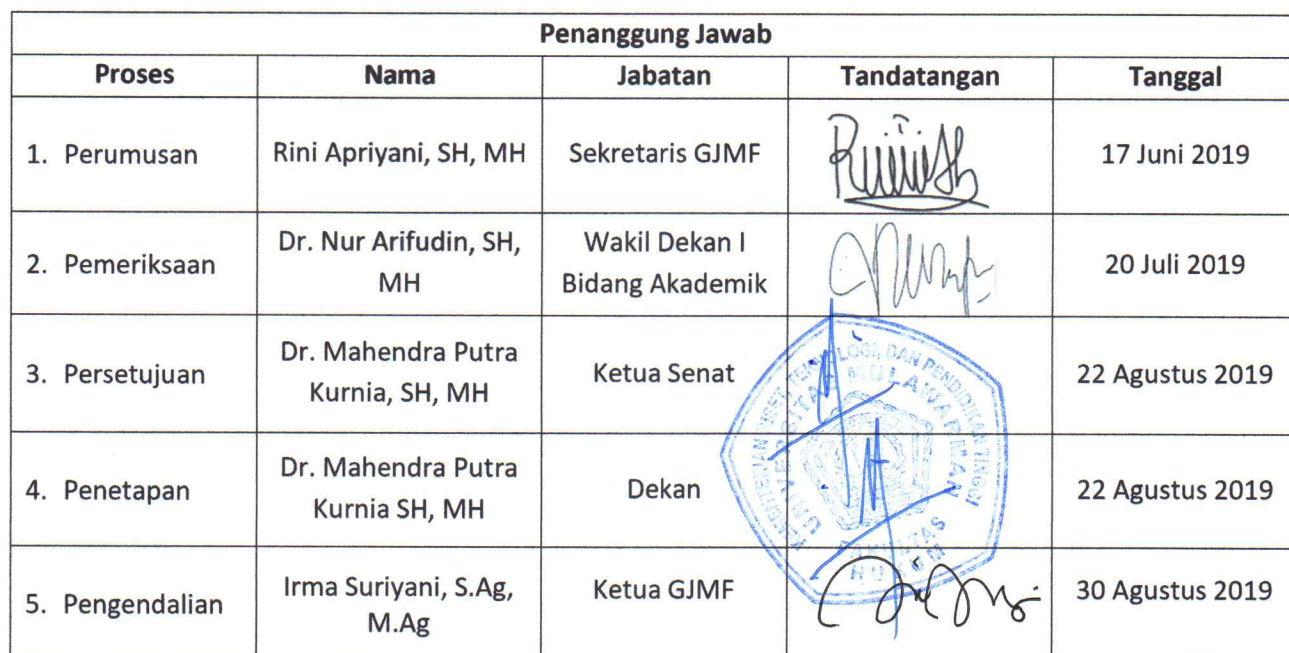 Penanggung Jawab
Proses Nama Jabatan Tandatangan Tanggal
1. Perumusan Rini Apriyani, SH, MH Sekretaris GJMF 17 Juni 2019
2. Pemeriksaan Dr. Nur Arifudin, SH, MH Wakil Dekan I Bidang Akademik 20 Juli 2019
3. Persetujuan Dr. Mahendra Putra Kurnia, SH, MH Ketua Senat 22 Agustus 2019
4. Penetapan Dr. Mahendra Putra Kurnia SH, MH Dekan 22 Agustus 2019
5. Pengendalian Irma Suriyani, S.Ag, M.Ag Ketua GJMF 30 Agustus 2019
DAN PENDIDIKAN TINGGI
UNIVERSITAS MULAWARMAN
FAKULTAS
HUKUM